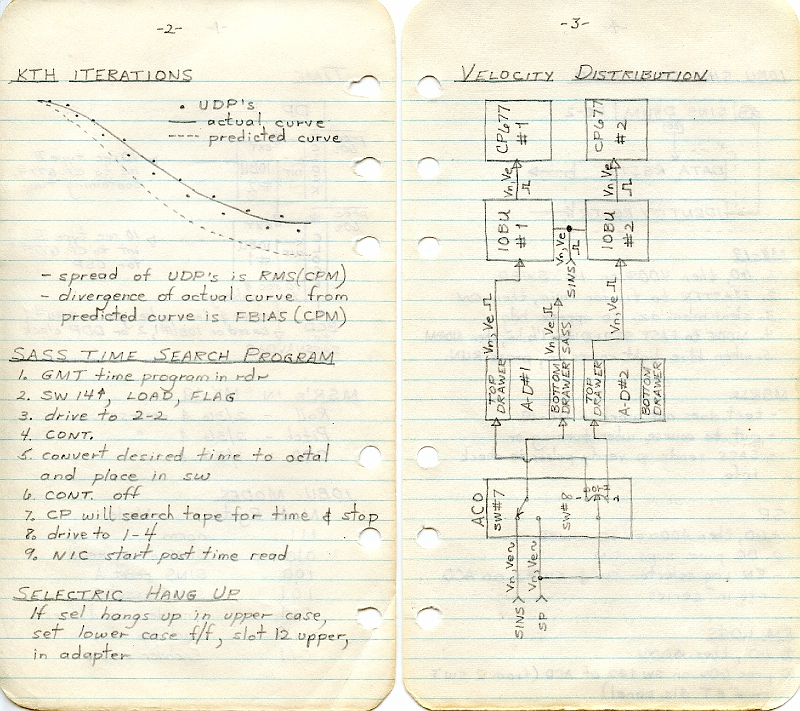 -2-
KTH ITERATIONS
• UDP's
— actual curve
---- predicted curve
- spread of UDP's is RMS(CPM)
- divergence of actual curve from
predicted curve is FBIAS (CPM)
SASS TIME SEARCH PROGRAM
1. GMT time program in rdr
2. SW 14↑, LOAD, FLAG
3. drive to 2-2
4. CONT.
5. convert desired time to octal
and place in sw
6. CONT. off
7. CP will search tape for time & stop
8. drive to 1-4
9. NIC start post time read
SELECTRIC HANG UP
If sel hangs up in upper case,
set lower case f/f, slot 12 upper,
in adapter
-3-
VELOCITY DISTRIBUTION
CP677 #1
CP677 #2
Vn,Ve
Vn,Ve
IOBU #1
IOBU #2
Vn,Ve
SINS
Vn,Ve
Vn,Ve
SASS
Vn,Ve
TOP DRAWER
A-D#1
BOTTOM DRAWER
TOP DRAWER
A-D#2
BOTTOM DRAWER
ACO
SW#7
SW#8
1
2
SINS
Vn,Ve~
SP
Vn,Ve~